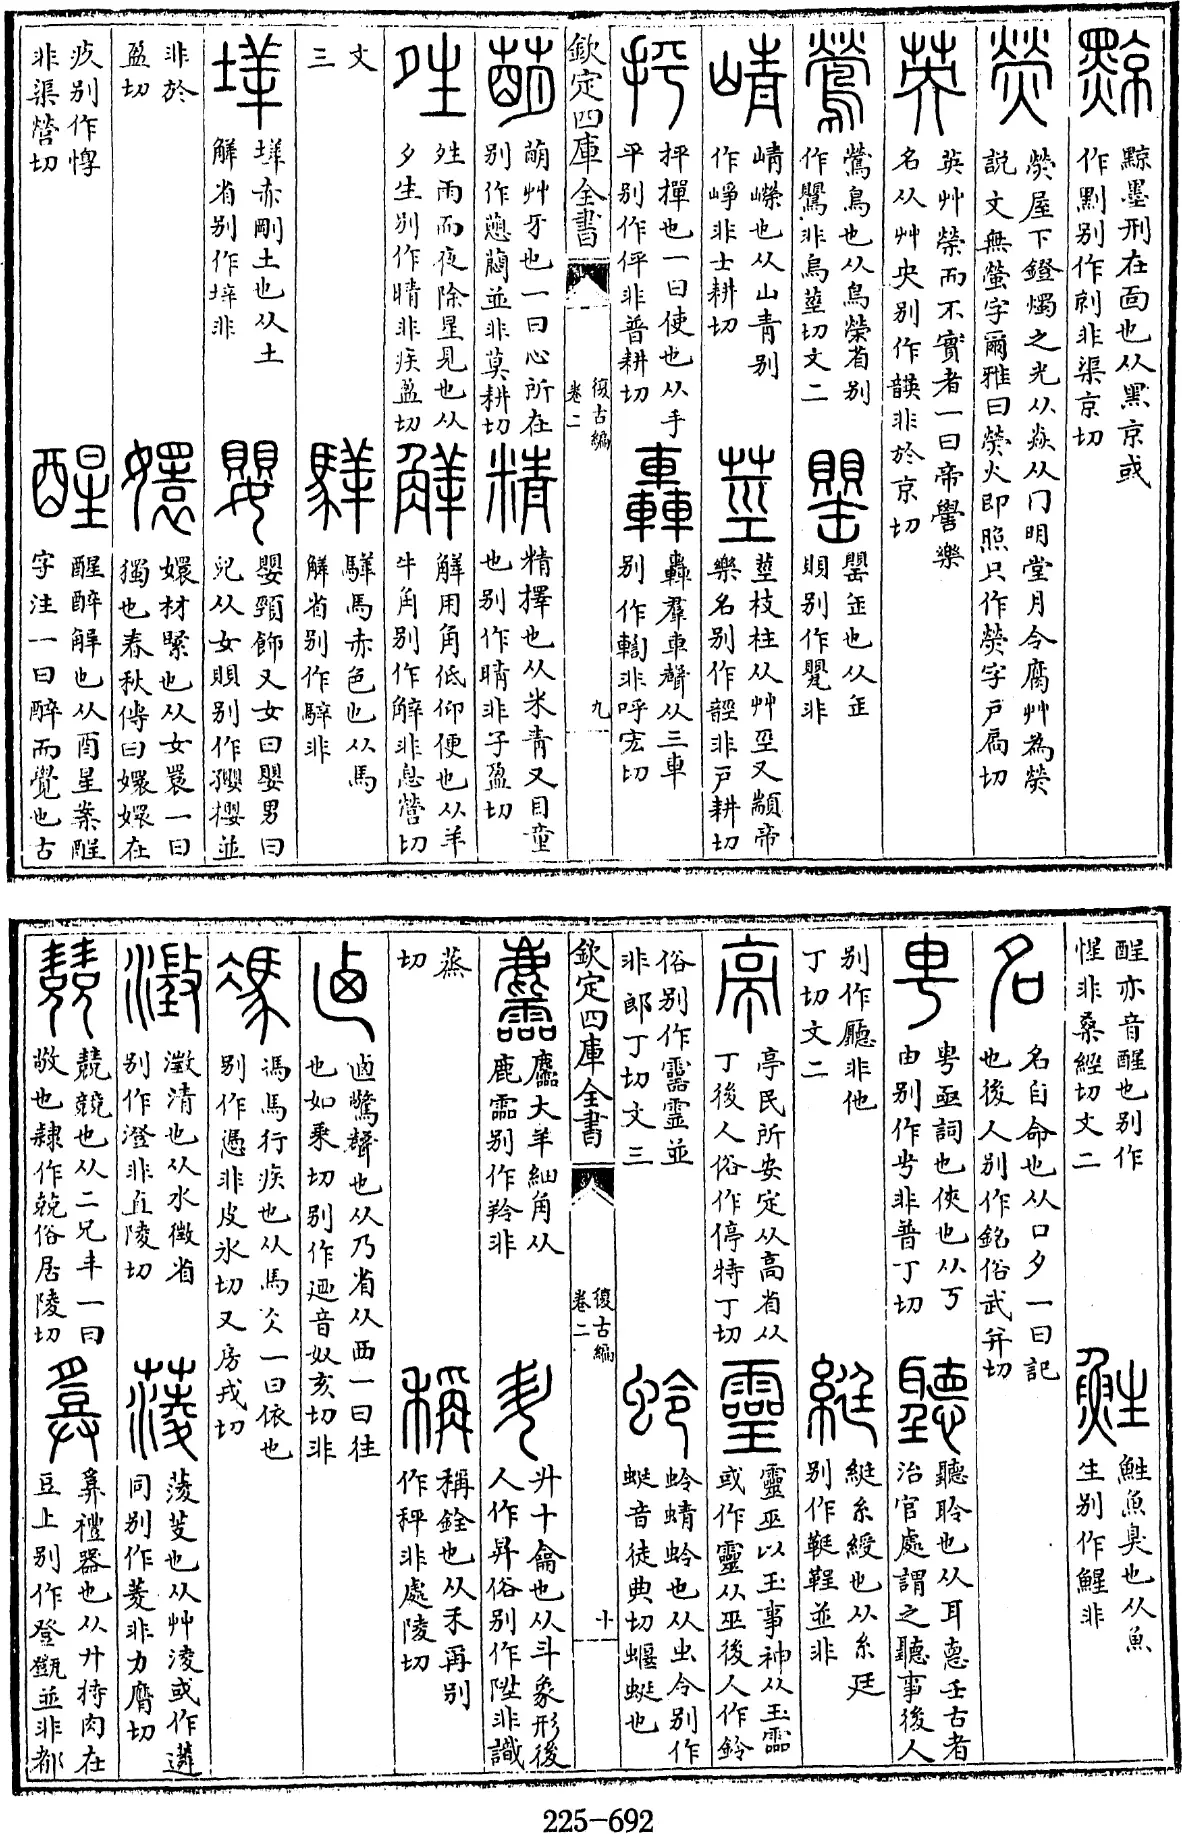 黥
黥墨刑在面也从黑京或
作黥别作剠非渠京切
熒
熒屋下鐙燭之光从焱从冂明堂月令腐艸為熒
説文無螢字爾雅曰熒火即照只作熒字戸扃切
英
英艸榮而不實者一曰帝嚳樂
名从艸央别作韺非於京切
鶯
鶯鳥也从鳥榮省别
作鸎非烏莖切文二
罌
罌缶也从缶
賏别作甖非
崝
崝嶸也从山青别
作崢非士耕切
莖
莖枝柱从艸巠又顓帝
樂名别作䪫非戸耕切
抨
抨撣也一曰使也从手
平别作伻非普耕切
轟
轟羣車聲从三車
别作輷非呼宏切
欽定四庫全書
復古編
卷二
九
萌
萌艸牙也一曰心所在
别作蕄並非莫耕切
精
精擇也从米青又目童
也别作睛非子盈切
夝
夝雨而夜除星見也从
夕生别作晴非疾盈切
觲
觲用角低仰便也从羊
牛角别作觧非息營切
文
三
騂
騂馬赤色也从馬
觲省别作騂非
垟
垟赤剛土也从土
觲省别作垶非
嬰
嬰頸飾又女曰嬰男曰
兒从女賏别作孾櫻並
非於
盈切
嬛
嬛材緊也从女睘一曰
獨也春秋傳曰嬛嬛在
疚别作惸
非渠營切
醒
醒醉解也从酉星案酲
字注一曰醉而覺也古
醒亦音醒也别作
惺非桑經切文二
鮏
鮏魚臭也从魚
生别作鯹非
名
名自命也从口夕一曰記
也後人别作銘俗武并切
甹
甹亟詞也俠也从丂
由别作甹非普丁切
聽
聽聆也从耳悳壬古者
治官處謂之聽事後人
别作廳非他
丁切文二
綎
綎系綬也从糸廷
别作鞓鞓並非
亭
亭民所安定从高省从
丁後人俗作停特丁切
靈
靈巫以玉事神从玉霝
或作靈从巫後人作鈴
俗别作靈霊並
非郎丁切文三
蛉
蛉蜻蛉也从虫令别作
蜓音徒典切蝘蜓也
欽定四庫全書
復古編
卷二
十
麢
麢大羊細角从
鹿霝别作羚非
升
升十龠也从斗象形後
人作昇俗别作陞非識
蒸
切
稱
稱銓也从禾爯别
作秤非處陵切
卥
卥驚聲也从乃省从西一曰往
也如乗切别作迺音奴亥切非
馮
馮馬行疾也从馬仌一曰依也
别作憑非皮氷切又房戎切
澂
澂清也从水徵省
别作澄非直陵切
蔆
蔆芰也从艸淩或作蓤
同别作菱非力膺切
競
競競也从二兄丰一曰
敬也隷作兢俗居陵切
豋
豋禮器也从廾持肉在
豆上别作登甑並非都
225-692